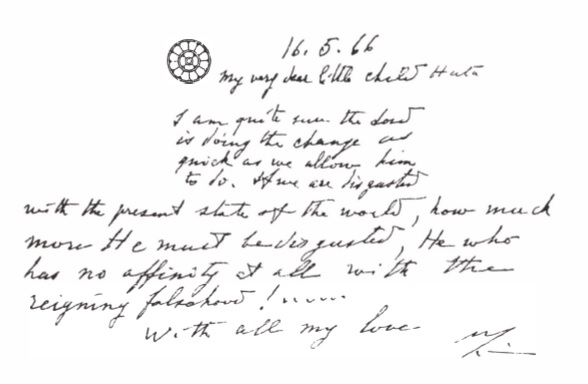 16.5.66
My very dear little child Huta
I am quite sure the Lord
is doing the change as
quick as we allow him
to do. If we are disgusted
with the present state of the world, how much
more He must be disgusted, He who
has no affinity at all with the
reigning falsehood!......
With all my love.